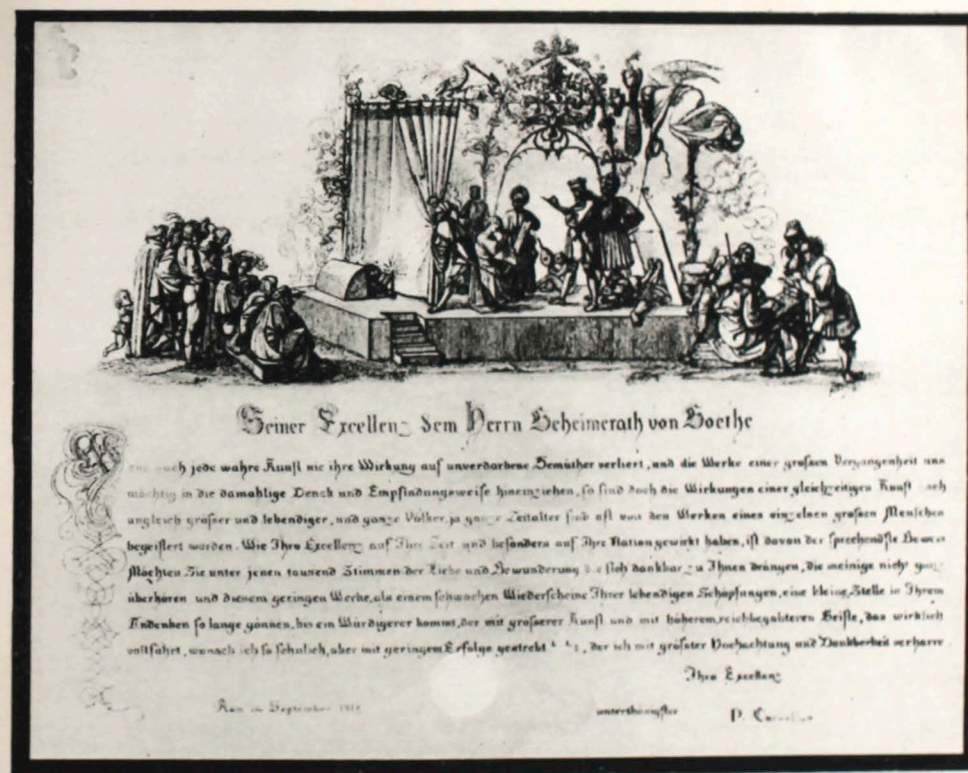 Seiner Excellenz dem Herrn Geheimerath von Goethe
auch jede wahre Kunst nie ihre Wirkung auf unverdorbene Gemüther verliert, und die Werke einer grossen Vergangenheit uns
mächtig in die damahlige Denck und Empfindungsweise hineinziehen, so sind doch die Wirkungen einer gleichzeitigen Kunst noch
ungleich grösser und lebendiger, und ganze Völker, ja ganze Zeitalter sind oft von den Werken eines einzelnen grossen Menschen
begeistert worden. Wie Ihro Excellenz auf Ihre Zeit und besonders auf Ihre Nation gewirkt haben, ist davon der sprechendste Beweis
Möchten Sie unter jenen tausend Stimmen der Liebe und Bewunderung die sich dankbar zu Ihnen drängen, die meinige nicht ganz
überhören und diesem geringen Werke, als einem schwachen Wiederscheine Ihrer lebendigen Schöpfungen, eine kleine Stelle in Ihrem
Andenken so lange gönnen, bis ein Würdigerer kommt, der mit grösserer Kunst und mit höherem, reichbegabteren Geiste, das wirklich
vollführt, wonach ich so sehnlich, aber mit geringem Erfolge gestrebt, der ich mit grösster Hochachtung und Dankbarkeit verharre
Ihro Excellenz
Rom im September
unterthänigster P. Cornelius